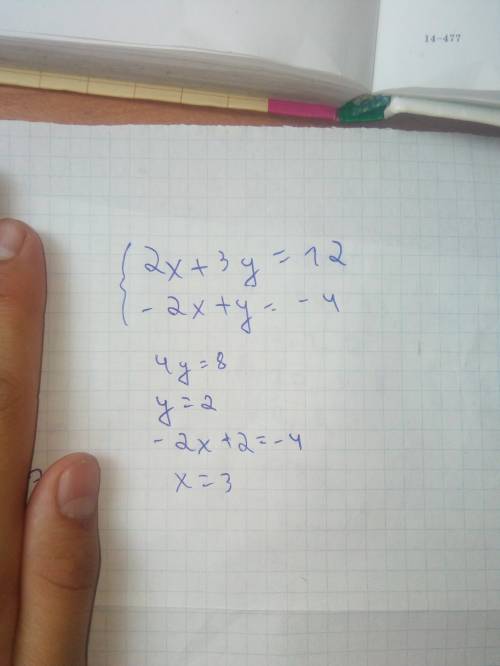 14-477
2x+3y=12
-2x+y=-4
4y=8
y=2
-2x+2=-4
x=3